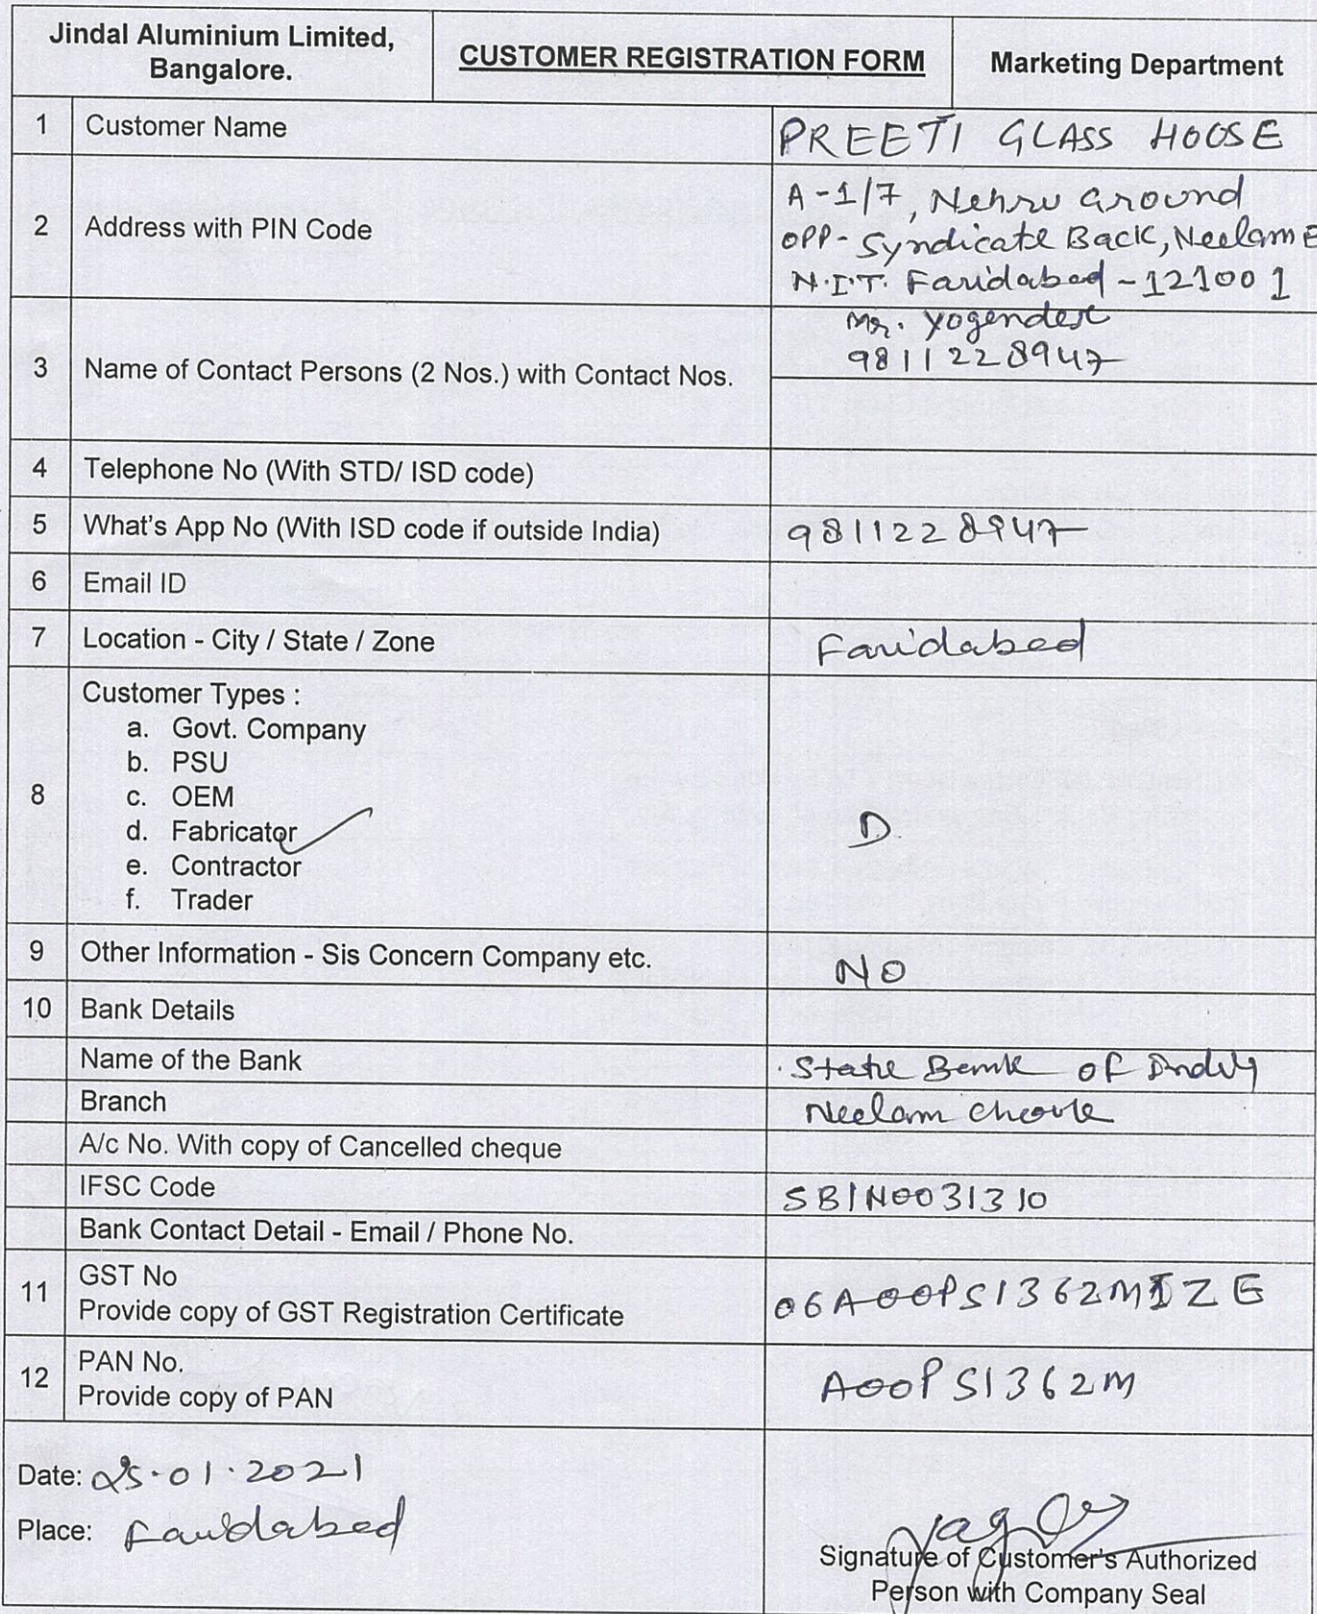 Jindal Aluminium Limited,
Bangalore.
CUSTOMER REGISTRATION FORM
Marketing Department
1 Customer Name PREETI GLASS HOUSE
2 Address with PIN Code
A-1/7, Nehru Ground
OPP- Syndicate Back, Neelam B
N.I.T. Faridabad - 121001
3 Name of Contact Persons (2 Nos.) with Contact Nos.
Mr. Yogender
9811228947
4 Telephone No (With STD/ ISD code)
5 What's App No (With ISD code if outside India) 9811228947
6 Email ID
7 Location - City / State / Zone Faridabad
8 Customer Types :
a. Govt. Company
b. PSU
c. OEM
d. Fabricator
e. Contractor
f. Trader
D
9 Other Information - Sis Concern Company etc. NO
10 Bank Details
Name of the Bank State Bank of India
Branch Neelam chowk
A/c No. With copy of Cancelled cheque
IFSC Code SBIN0031310
Bank Contact Detail - Email / Phone No.
11 GST No
Provide copy of GST Registration Certificate
06AOOPS1362M1ZE
12 PAN No.
Provide copy of PAN
AOOPS1362M
Date: 25.01.2021
Place: Faridabad
Signature of Customer's Authorized
Person with Company Seal